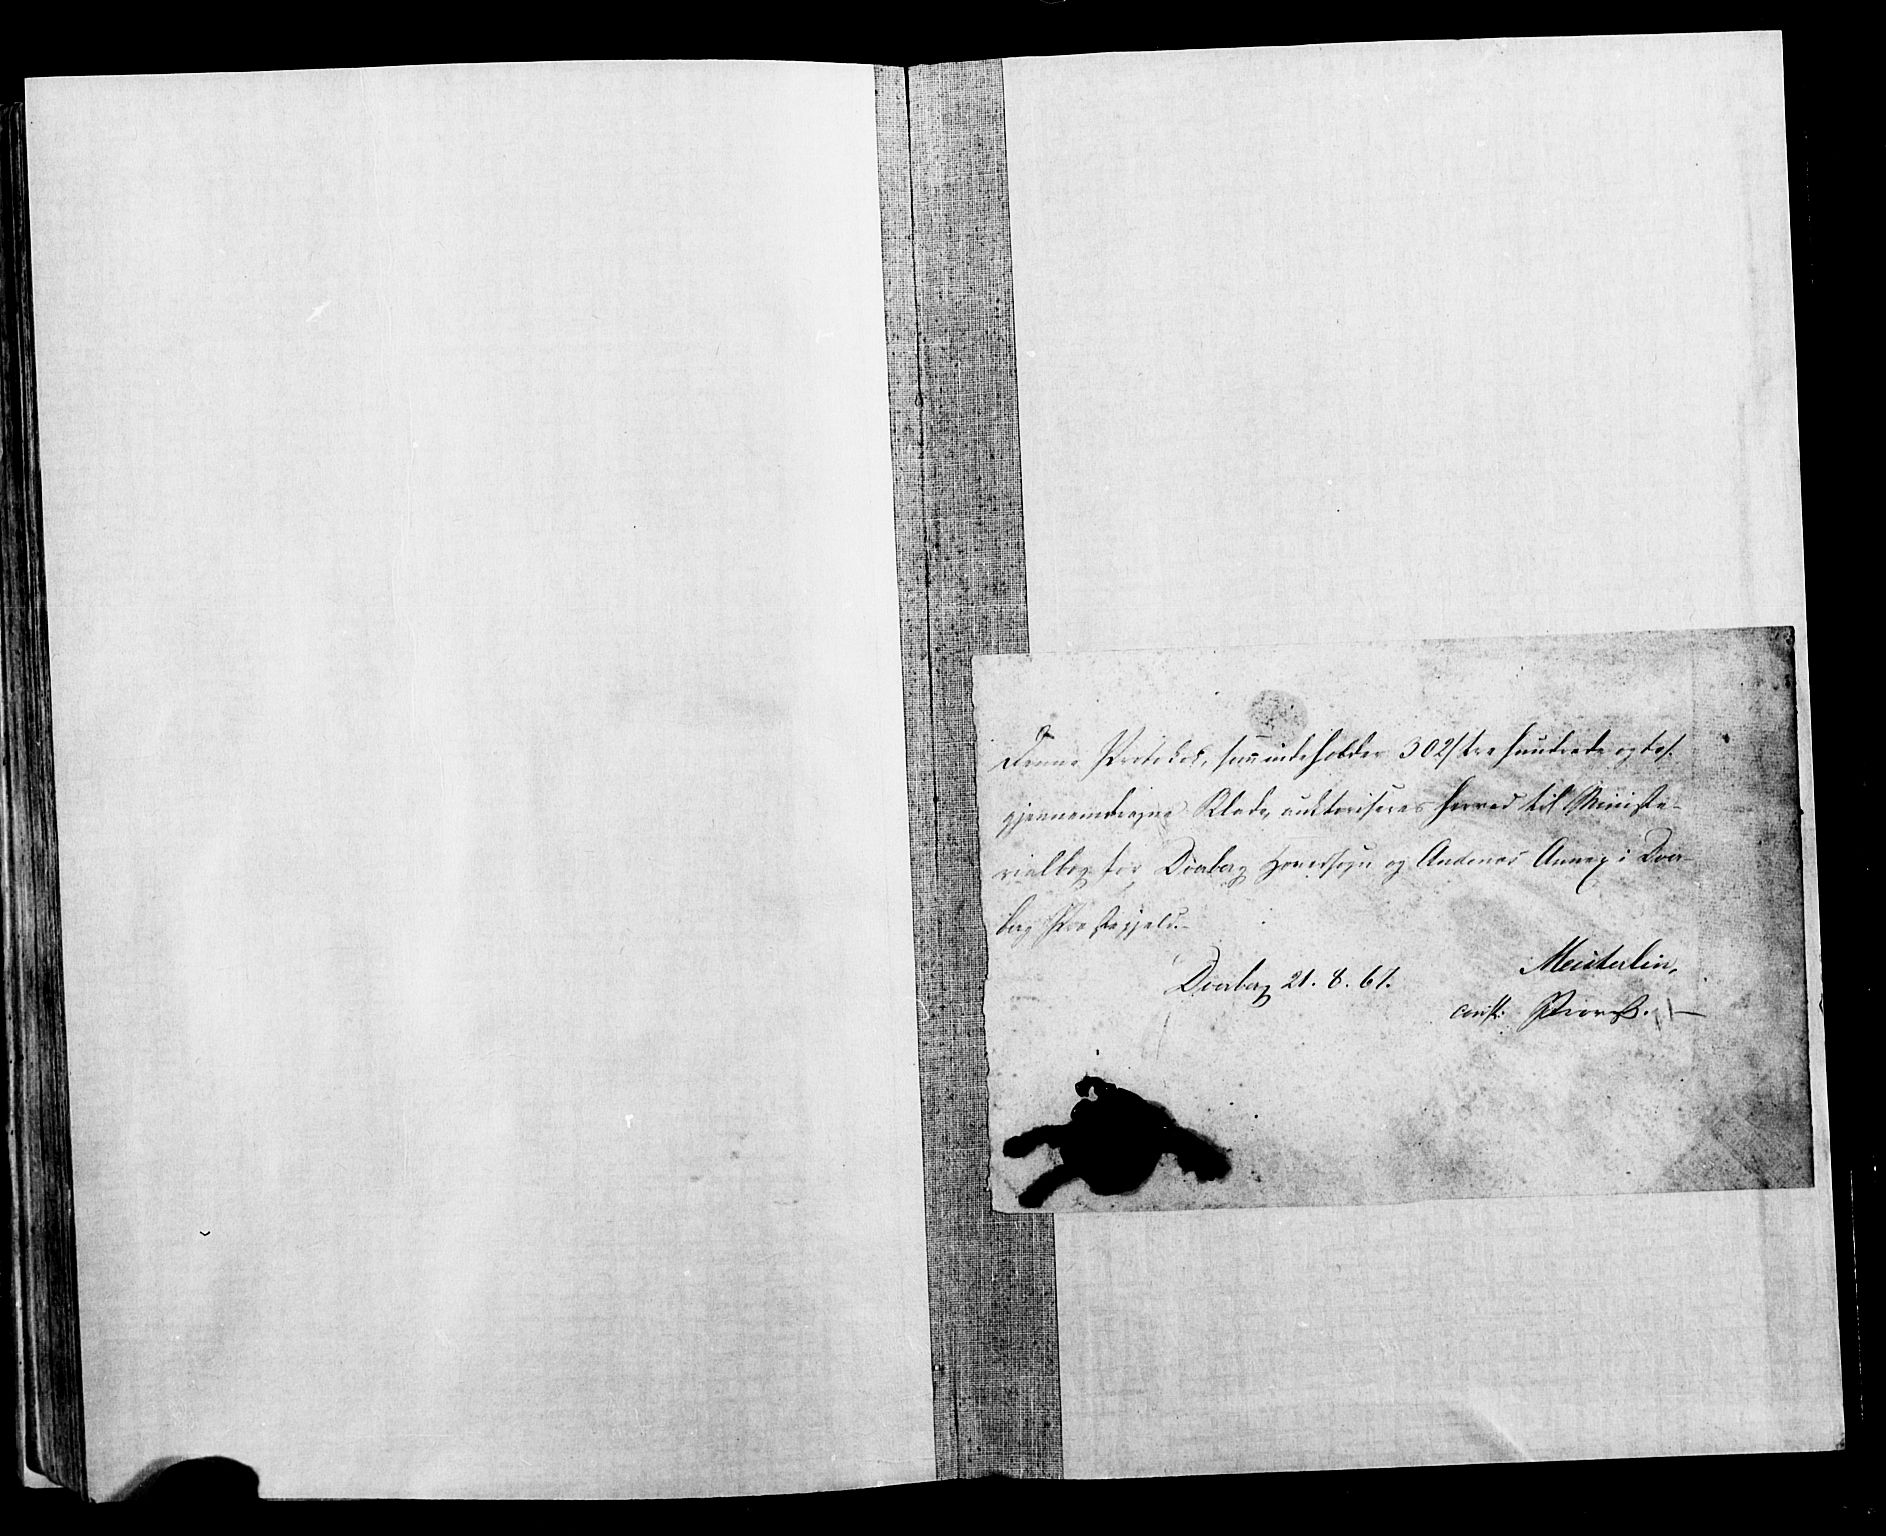 Denne Protokol, som indeholder 302/tre hundrede og to/
gjennemdragne Blade, auktoriseres herved til Ministe-
rialbog for Dverberg Hovedsogn og Andenes Annex i Dver-
berg Præstegjeld.
Dverberg 21. 8. 61.
Meisterlin,
const. Provst.